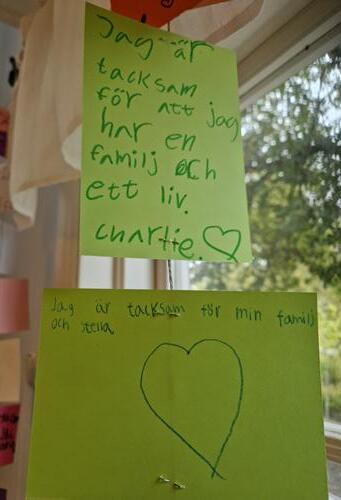 Jag är
tacksam
för att jag
har en
familj och
ett liv.
charlie.
Jag är tacksam för min familj
och stella